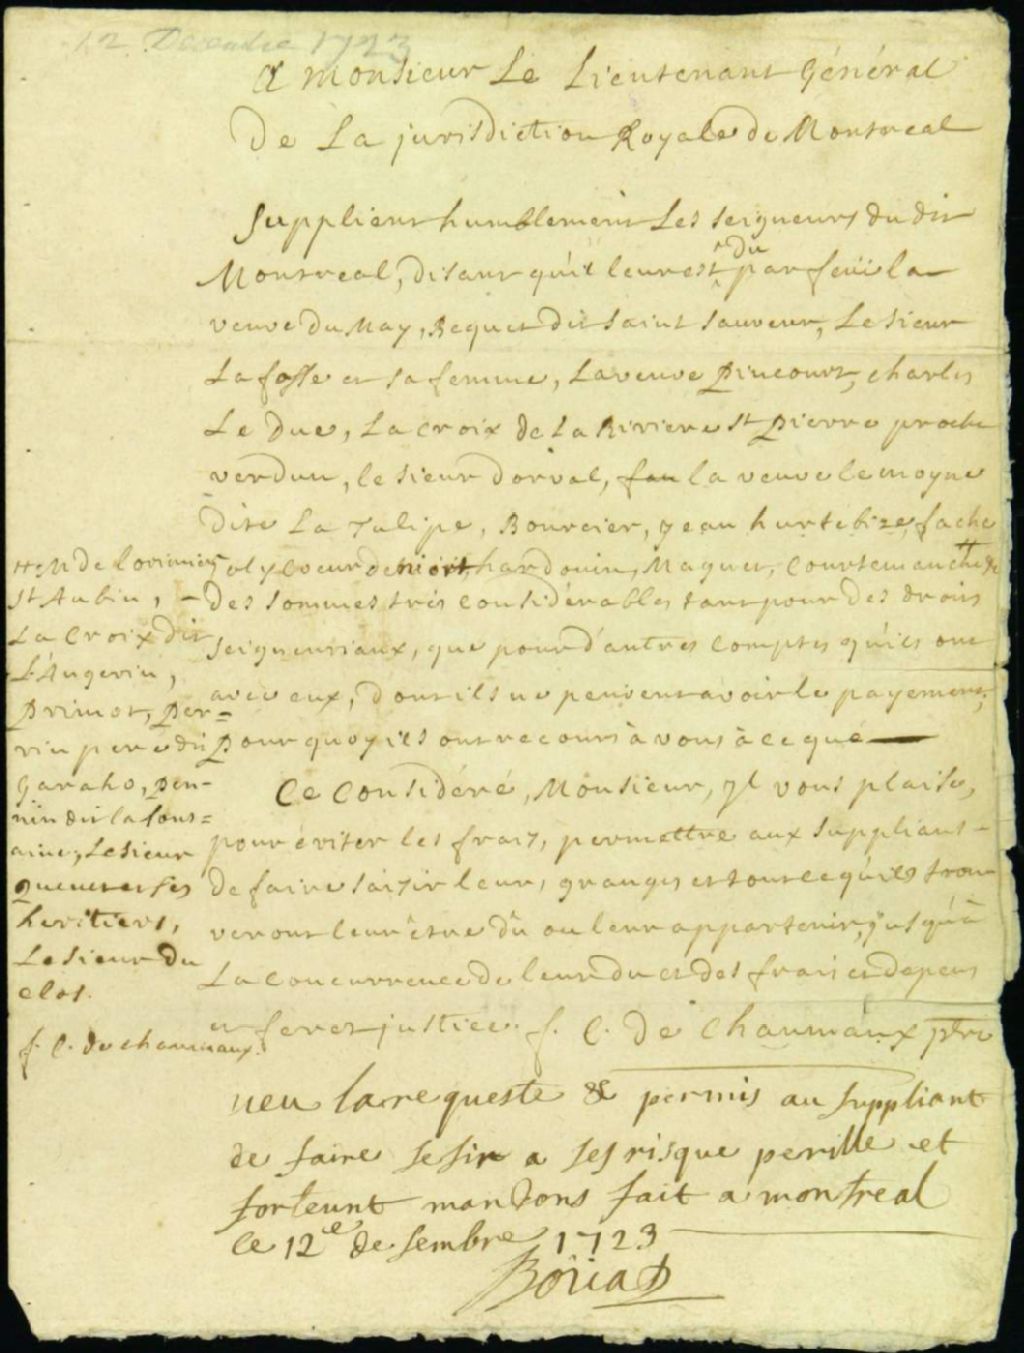 12 Decembre 1723
A Monsieur Le Lieutenant Général
De La jurisdiction Royale de Montreal
Supplient humblement Les seigneurs du dit
Montreal, disant qu'il leur est du par feüe la
veuve Du May, Bequet dit saint sauveur, Le sieur
La fosse et sa femme, La veuve Pincourt, charles
Le Duc, La croix de La Riviere St Pierre proche
verdun, le sieur Dorval, la veuve le moyne
Dite La Tulipe, Bourcier, jean hurtebize,
de niort, hardouin, Maguet, Courtemanche &
des sommes très Considérables tant pour des droits
seigneuriaux, que pour d'autres Comptes qu'ils ont
avec eux, dont ils ne peuvent avoir le payement,
Pourquoy ils ont recours à vous à ce que
Ce Considéré, Monsieur, yl vous plaise,
pour éviter les fraiz, permettre aux supplians
de faire saizir leurs granges et tout ce qu'ils trou
veront leur être dû ou leur appartenir, jusqu'à
La concurrence de leur du et des frais et depens
et ferez justice. f. C. de Chaumaux ptre
H M de Lorimier
St Aubin,
La Croix dit
L'Angevin,
Primot, Per=
rin pere dit
Garaho, Pen-
nin dit la fons=
aine, Le sieur
quenet et ses
heritiers,
Le sieur Du
clos.
f. C. de chaumaux.
veu la requeste & permis au suppliant
de faire sesir a ses risque perille et
forteunt mandons fait a montreal
le 12e desembre 1723
Boüat